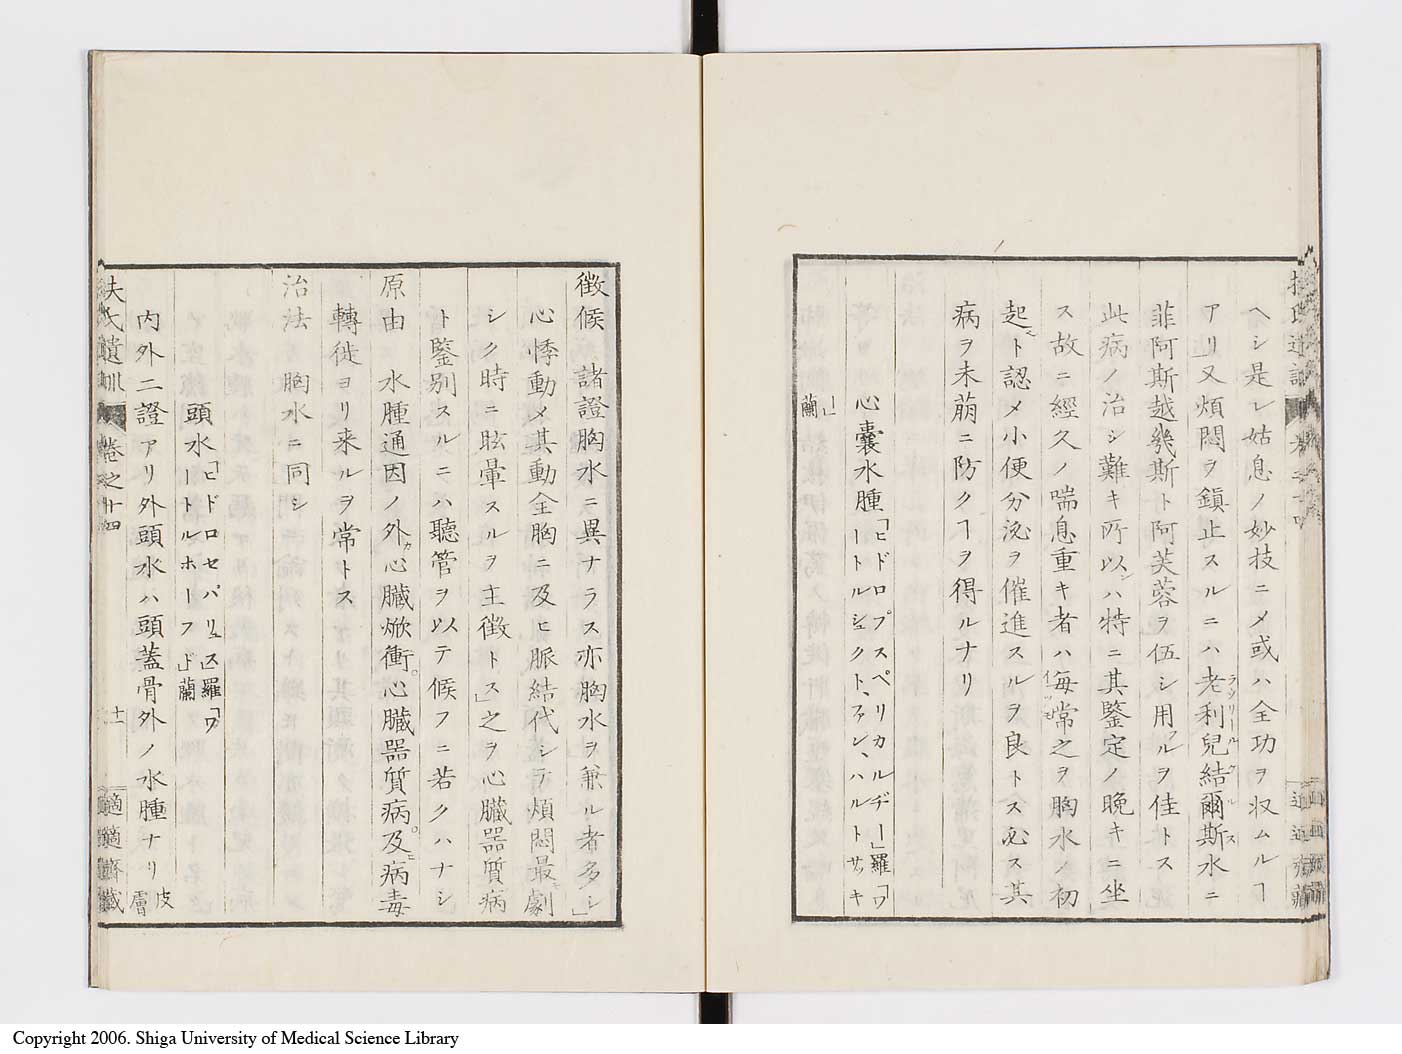 ヘシ是レ姑息ノ妙技ニメ或ハ全功ヲ収ムルヿ
アリ」又煩悶ヲ鎮止スルニハ老利児結爾斯水ニ
ラウリールケルス
菲阿斯越幾斯ト阿芙蓉ヲ伍シ用フルヲ佳トス
此病ノ治シ難キ所以ンハ特ニ其鑒定ノ晩キニ坐
ス故ニ經久ノ喘息重キ者ハ毎常之ヲ胸水ノ初
起ト認メ小便分泌ヲ催進スルヲ良トス必ス其
病ヲ未萠ニ防クヿヲ得ルナリ
心嚢水腫「ヒドロプスペリカルヂー」羅「ワ
ートルシュクトファンハルトサッキ
」蘭
徴候 諸證胸水ニ異ナラス亦胸水ヲ兼ル者多シ」
心悸動メ其動全胸ニ及ヒ脈結代シテ煩悶最モ劇
シク時ニ眩暈スルヲ主徴トス」之ヲ心臓器質病
ト鑒別スルニハ聽管ヲ以テ候フニ若クハナシ
原由 水腫通因ノ外心臓焮衝。心臓器質病。及ヒ病毒
轉徙ヨリ来ルヲ常トス
治法 胸水ニ同シ
頭水「ヒドロセパリュス」羅「ワ
ートルホーフド」蘭
内外二證アリ外頭水ハ頭蓋骨外ノ水腫ナリ皮膚
扶氏遺訓 巻之十四 十一 適適齋藏
Copyright 2006. Shiga University of Medical Science Library